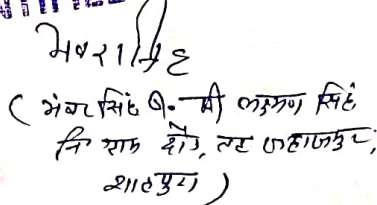 भंवरसिंह
( भंवर सिंह S. श्री लक्ष्मण सिंह
नि ग्राम तह जहाजपुर,
शाहपुरा )